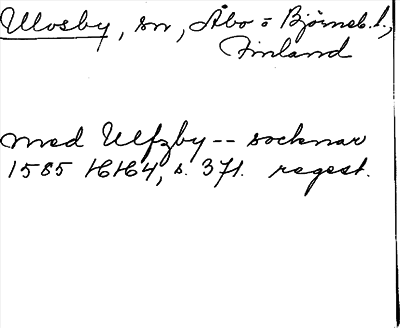 Ulvsby, sn, Åbo = Björneb. l.,
Finland
med Ulfzby -- socknar
1585 HH4, s. 371. regest.